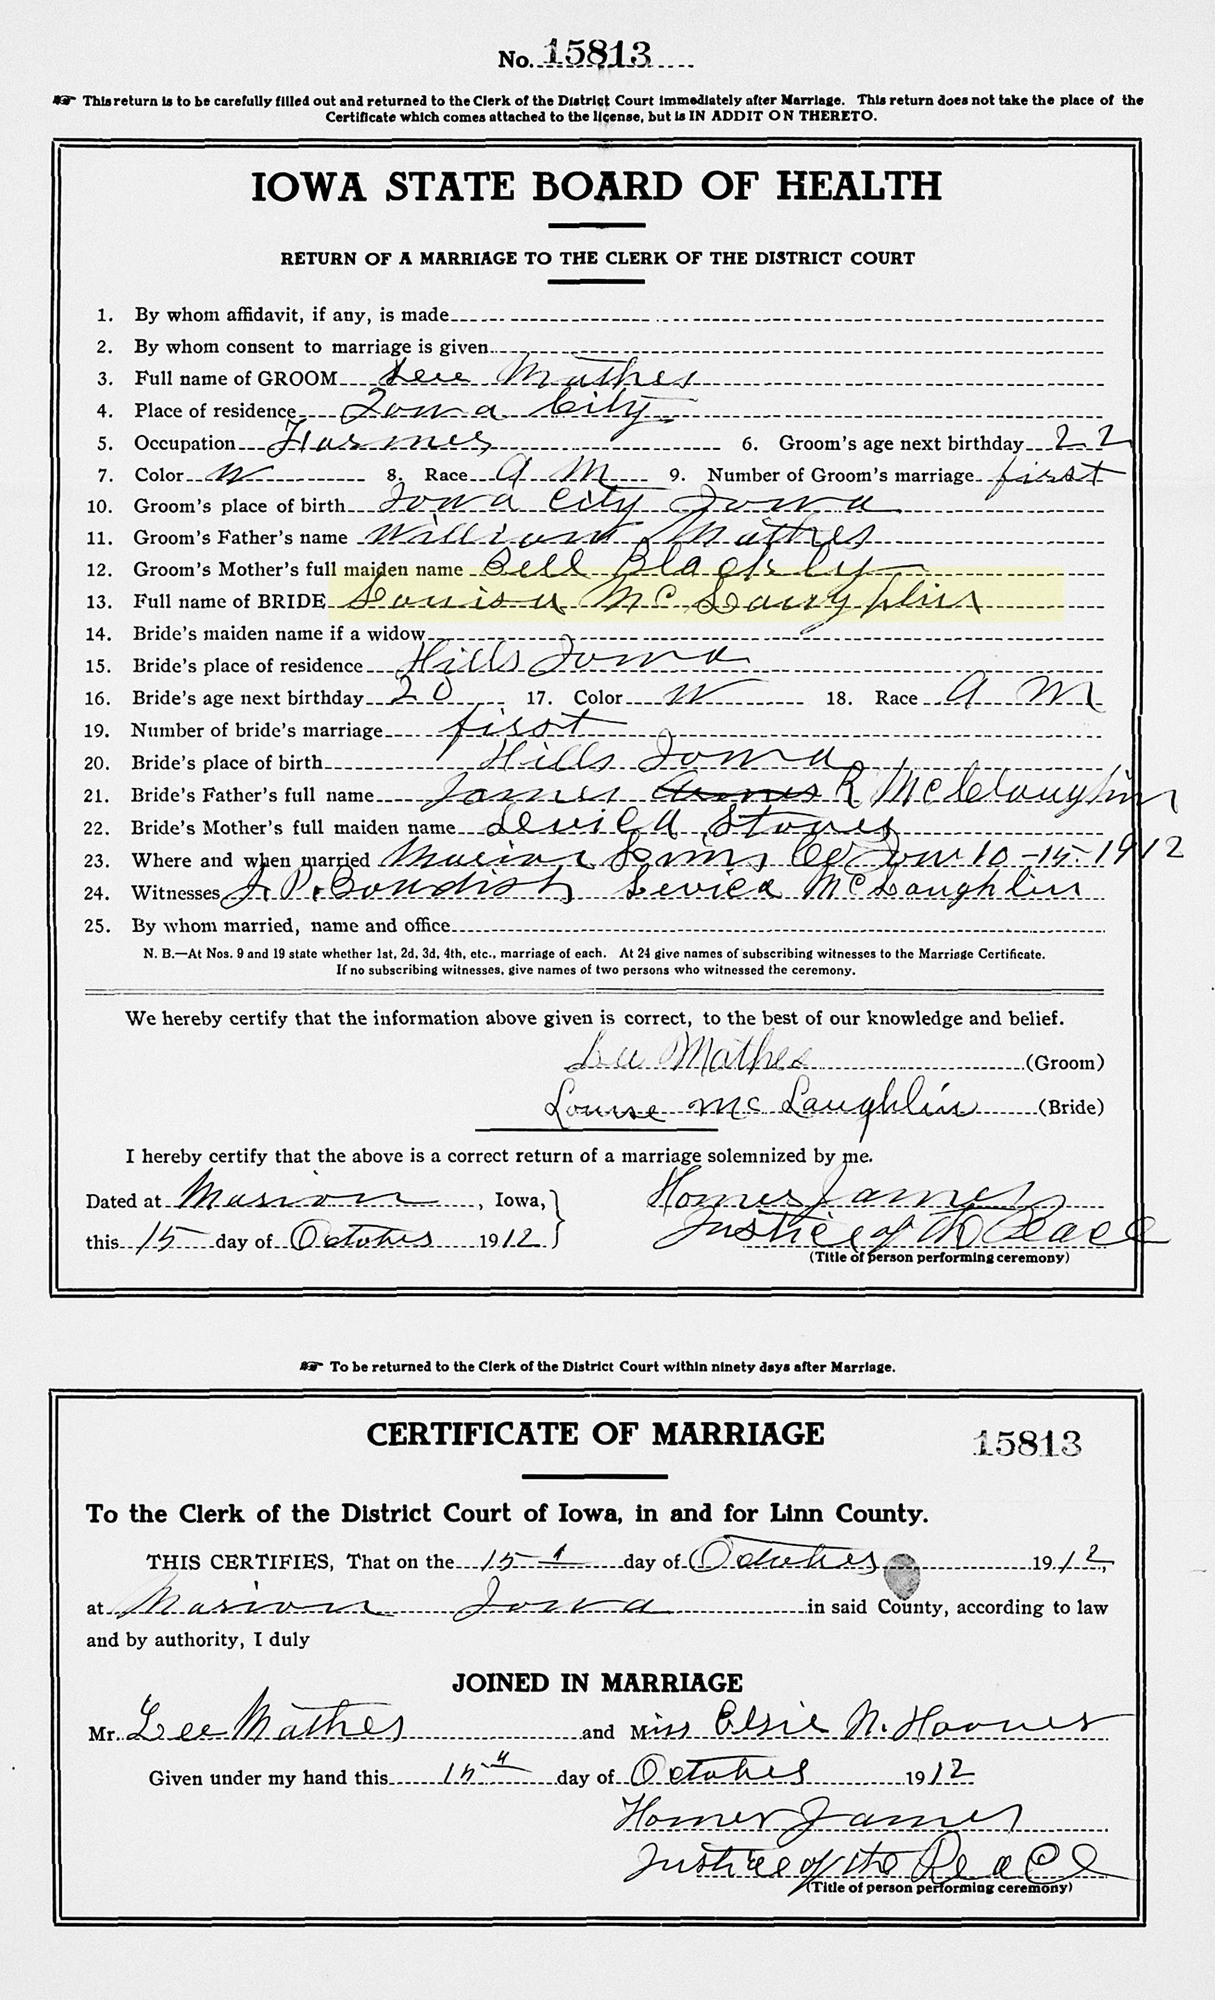 No. 15813
This return is to be carefully filled out and returned to the Clerk of the District Court immediately after Marriage. This return does not take the place of the
Certificate which comes attached to the license, but is IN ADDIT ON THERETO.
IOWA STATE BOARD OF HEALTH
RETURN OF A MARRIAGE TO THE CLERK OF THE DISTRICT COURT
1. By whom affidavit, if any, is made
2. By whom consent to marriage is given
3. Full name of GROOM Lee Mathes
4. Place of residence Iowa City
5. Occupation Farmer 6. Groom's age next birthday 22
7. Color W 8. Race A M 9. Number of Groom's marriage first
10. Groom's place of birth Iowa City Iowa
11. Groom's Father's name William Mathes
12. Groom's Mother's full maiden name Bell Blackly
13. Full name of BRIDE Louisa McLaughlin
14. Bride's maiden name if a widow
15. Bride's place of residence Hills Iowa
16. Bride's age next birthday 20 17. Color W 18. Race A M
19. Number of bride's marriage first
20. Bride's place of birth Hills Iowa
21. Bride's Father's full name James R McClaughlin
22. Bride's Mother's full maiden name Levica
23. Where and when married Marion Linn Co Iow 10-15-1912
24. Witnesses J. P. Levica McLaughlin
25. By whom married, name and office
N. B.—At Nos. 9 and 19 state whether 1st, 2d, 3d, 4th, etc., marriage of each. At 24 give names of subscribing witnesses to the Marriage Certificate.
If no subscribing witnesses, give names of two persons who witnessed the ceremony.
We hereby certify that the information above given is correct, to the best of our knowledge and belief.
Lee Mathes (Groom)
Louise McLaughlin (Bride)
I hereby certify that the above is a correct return of a marriage solemnized by me.
Dated at Marion, Iowa, Homer James
this 15 day of October 1912 Justice of the Peace
(Title of person performing ceremony)
To be returned to the Clerk of the District Court within ninety days after Marriage.
CERTIFICATE OF MARRIAGE 15813
To the Clerk of the District Court of Iowa, in and for Linn County.
THIS CERTIFIES, That on the 15 day of October 1912,
at Marion Iowa in said County, according to law
and by authority, I duly
JOINED IN MARRIAGE
Mr. Lee Mathes and Miss Elsie N. Hoover
Given under my hand this 15 day of October 1912
Homer James
Justice of the Peace
(Title of person performing ceremony)